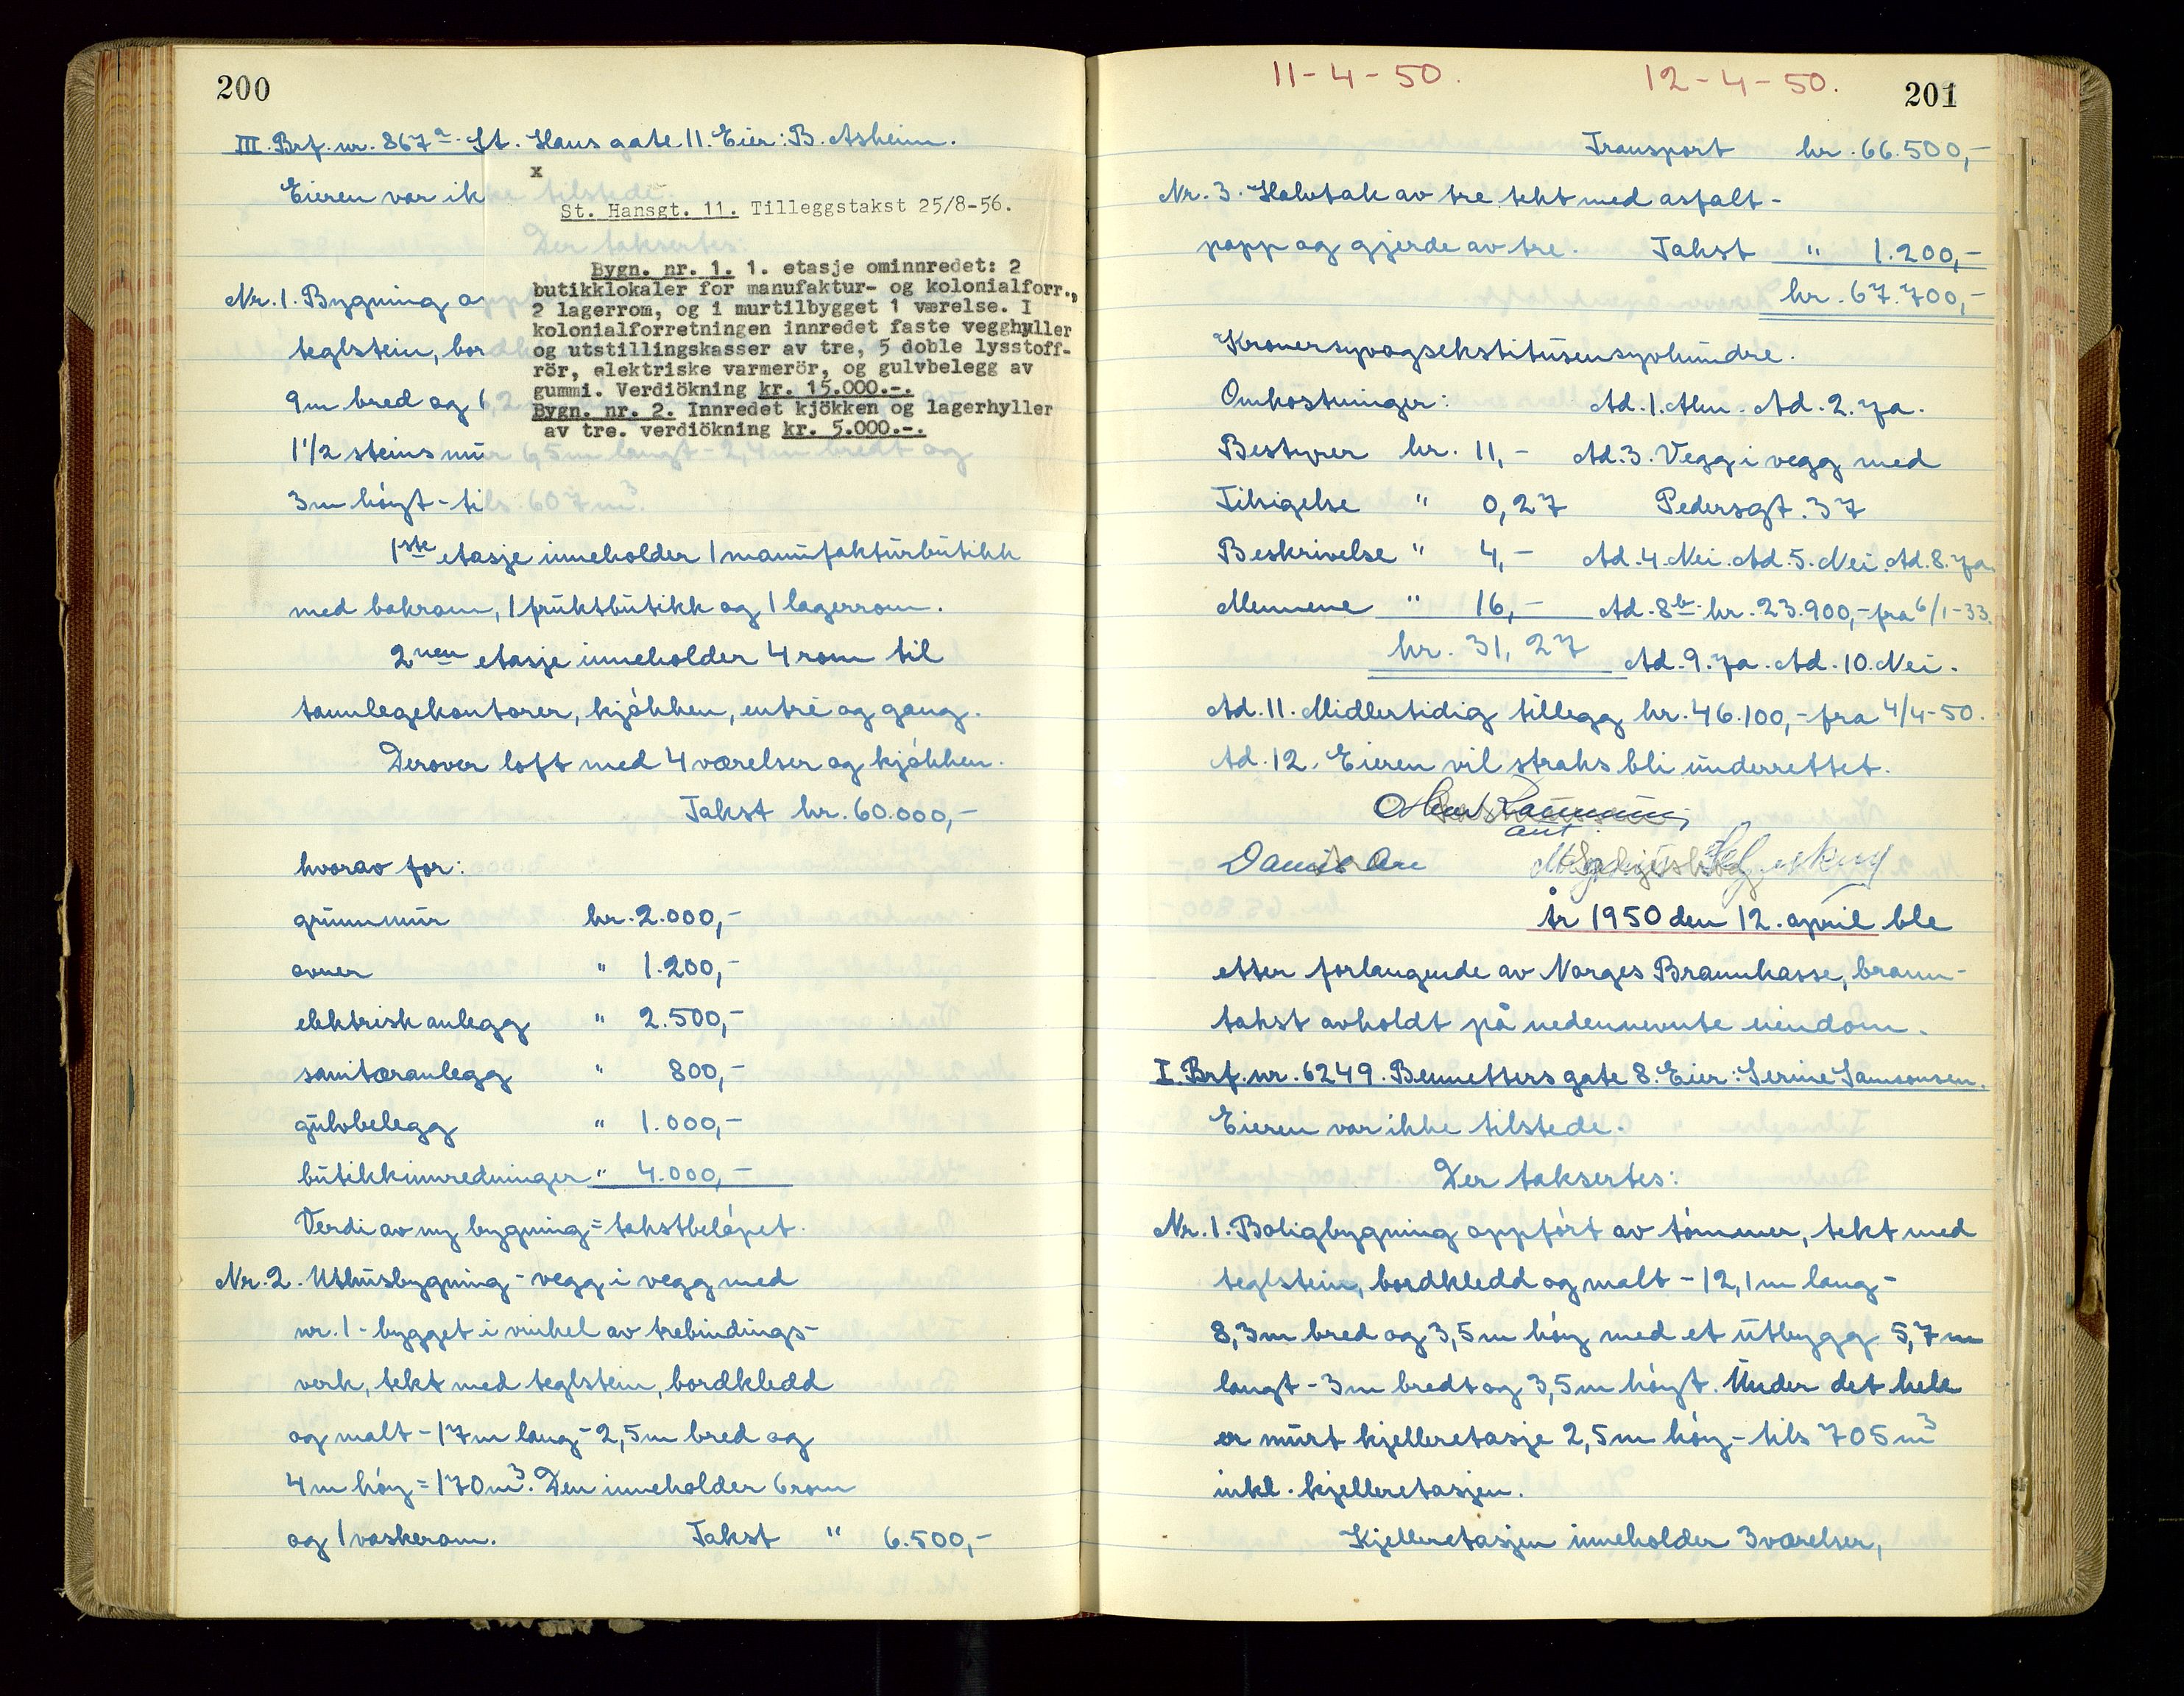 200
III. Brf. nr. 867a. St. Hans gate 11. Eier: B. Asheim.
x
Eieren var ikke tilstede.
St. Hansgt. 11. Tilleggstakst 25/8-56.
Der taksertes:
Bygn. nr. 1. 1. etasje ominnredet: 2
butikklokaler for manufaktur- og kolonialforr.,
2 lagerrom, og i murtilbygget 1 værelse. I
kolonialforretningen innredet faste vegghyller
og utstillingskasser av tre, 5 doble lysstoff-
rör, elektriske varmerör, og gulvbelegg av
gummi. Verdiökning kr. 15.000.-.
Bygn. nr. 2. Innredet kjökken og lagerhyller
av tre. verdiökning kr. 5.000.-.
Nr. 1. Bygning
teglstein, bor
9m bred og 6,2
1 1/2 steins mur 6,5m langt - 2,4m bredt og
3m höyt - tils. 607 m3.
1ste etasje inneholder 1 manufakturbutikk
med bakrom, 1 fruktbutikk og 1 lagerrom.
2nen etasje inneholder 4 rom til
tannlegekontorer, kjökken, entré og gang.
Derover loft med 4 værelser og kjökken.
Takst kr. 60.000,-
hvorav for:
grunnmur kr. 2.000,-
ovner " 1.200,-
elektrisk anlegg " 2.500,-
sanitæranlegg " 800,-
gulvbelegg " 1.000,-
butikkinnredninger " 4.000,-
Verdi av ny bygning = takstbelöpet.
Nr. 2. Uthusbygning - vegg i vegg med
nr. 1 - bygget i vinkel av trebindings-
verk, tekt med teglstein, bordkledd
og malt - 17m lang - 2,5m bred og
4m höy = 170m3. Den inneholder 6 rom
og 1 vaskerom. Takst " 6.500,-
11-4-50. 12-4-50.
201
Transport kr. 66.500,-
Nr. 3. Halvtak av tre tekt med asfalt-
papp og gjerde av tre. Takst " 1.200,-
kr. 67.700,-
Kronersyvogsekstitusensyvhundre.
Omkostninger: Ad. 1. Alm. Ad. 2. Ja.
Bestyrer kr. 11,- Ad. 3. Vegg i vegg med
Tilsigelse " 0,27 Pedersgt. 37
Beskrivelse " 4,- Ad. 4. Nei. Ad. 5. Nei. Ad. 8. Ja.
Mennene " 16,- Ad. 8b. kr. 23.900,- fra 6/1-33.
kr. 31,27 Ad. 9. Ja. Ad. 10. Nei.
Ad. 11. Midlertidig tillegg kr. 46.100,- fra 4/4-50.
Ad. 12. Eieren vil straks bli underrettet.
År 1950 den 12. april ble
etter forlangende av Norges Brannkasse, brann-
takst avholdt på nedennevnte eiendom.
I. Brf. nr. 6249. Bennetters gate 8. Eier: Serine Samsonsen.
Eieren var ikke tilstede.
Der taksertes:
Nr. 1. Boligbygning oppfört av tömmer, tekt med
teglstein, bordkledd og malt - 12,1m lang -
8,3m bred og 3,5m höy med et utbygg 5,7m
langt - 3m bredt og 3,5m höyt. Under det hele
er murt kjelleretasje 2,5m höy - tils 705 m3
inkl. kjelleretasjen.
Kjelleretasjen inneholder 3 værelser,